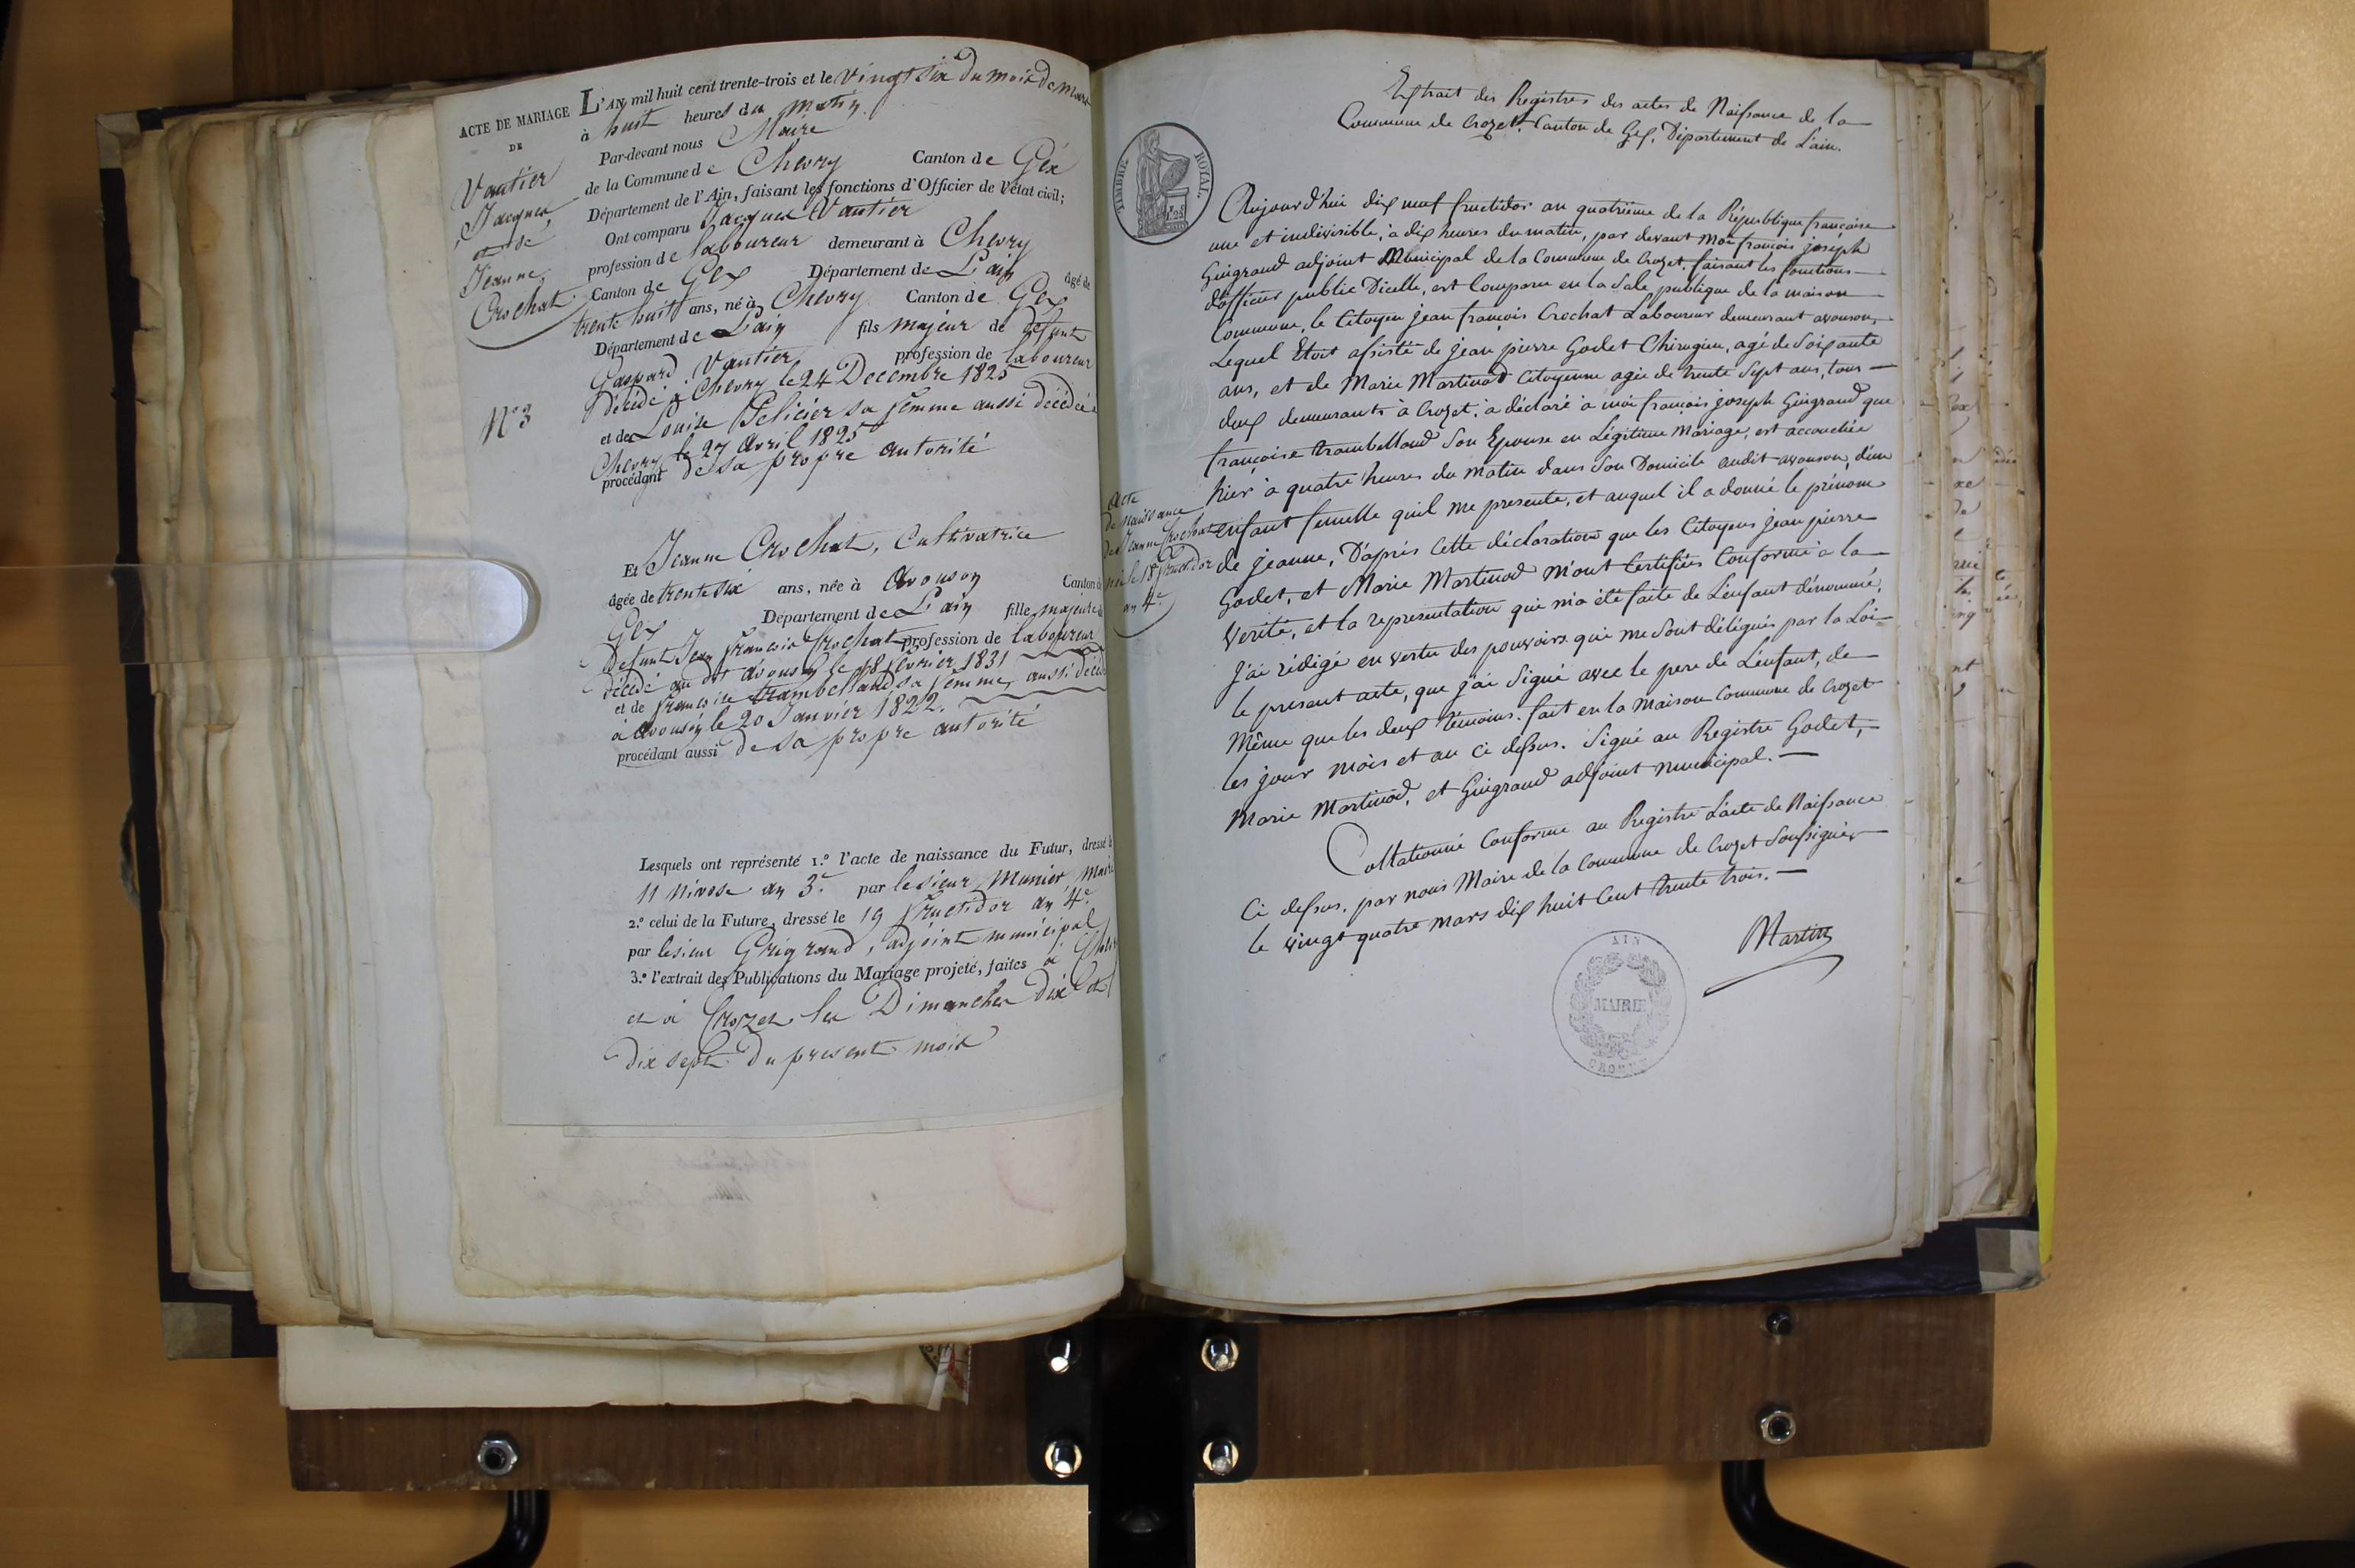 ACTE DE MARIAGE
DE
Vautier
Jacques,
et de
Jeanne
Crochat
N° 3
L'AN mil huit cent trente-trois et le vingt six du mois de mars
à huit heures du matin
Par-devant nous Maire
de la Commune de Chevry Canton de Gex
Département de l'Ain, faisant les fonctions d'Officier de l'état civil;
Ont comparu Jacques Vautier
profession de laboureur demeurant à Chevry
Canton de Gex Département de L'ain âgé de
trente huit ans, né à Chevry Canton de Gex
Département de L'ain fils majeur de defunt
Gaspard Vautier profession de laboureur
décédé à Chevry le 24 Decembre 1825
et de Louise Pelicier sa femme aussi décédée
Chevry le 27 Avril 1825
procédant de sa propre autorité
Et Jeanne Crochat, Cultivatrice
âgée de trente six ans, née à Avouson Canton de
Gex Département de L'ain fille majeure de
defunt Jean François Crochat profession de laboureur
décédé au dit Avouson le 18 fevrier 1831
et de françoise trambelland sa femme, aussi décédé
à Avouson le 20 Janvier 1822.
procédant aussi de sa propre autorité
Lesquels ont représenté 1.° l'acte de naissance du Futur, dressé le
11 Nivose an 3.e par le sieur Munier, Maire
2.° celui de la Future, dressé le 19 fructidor an 4.e
par le sieur Grigrand, adjoint municipal
3.° l'extrait des Publications du Mariage projeté, faites à
et à Crozet les Dimanches dix et
dix sept du present mois
Extrait des Registres des actes de Naissance de la
Commune de Crozet, Canton de Gex, Département de L'ain.
TIMBRE ROYAL
Acte
de naissance
de Jeanne Crochat
née le 18 fructidor
an 4.e
Aujourd'hui dix neuf fructidor an quatrième de la République française
une et indivisible, à dix heures du matin, par devant moi françois joseph
Guigrand adjoint Municipal de la Commune de Crozet, faisant les fonctions
d'officier public Dicelle, est Comparu en la Sale publique de la maison
Commune, le Citoyen jean françois Crochat Laboureur demeurant avouson,
Lequel Etoit assisté de jean pierre Godet Chirugien, agé de Soixante
ans, et de Marie Martinod Citoyenne agée de trente Sept ans, tous
deux demeurants à Crozet; a déclaré à moi françois joseph Guigrand que
françoise trambelland Son Epouse en Légitime Mariage, est accouchée
hier à quatre heures du matin dans Son Domicile audit avouson, d'un
enfant femelle quil me presente, et auquel il a donné le prénom
de jeanne, D'après Cette déclaration que les Citoyens jean pierre
Godet, et Marie Martinod m'ont Certifiés Conforme à la
verité, et la representation qui m'a été faite de L'enfant dénommé,
j'ai rédigé en vertu des pouvoirs qui me Sont délégués par la Loi
le present acte, que j'ai Signé avec le pere de L'enfant, de
Même que les deux témoins. fait en la Maison Commune de Crozet
les jour mois et an Ci dessus. Signé au Registre Godet,
Marie Martinod, et Guigrand adjoint municipal.
Collationné Conforme au Registre L'acte de Naissance
Ci dessus, par nous Maire de la Commune de Crozet Soussigné,
le vingt quatre mars dix huit Cent trente trois.
Martin
AIN
MAIRIE
CROZET